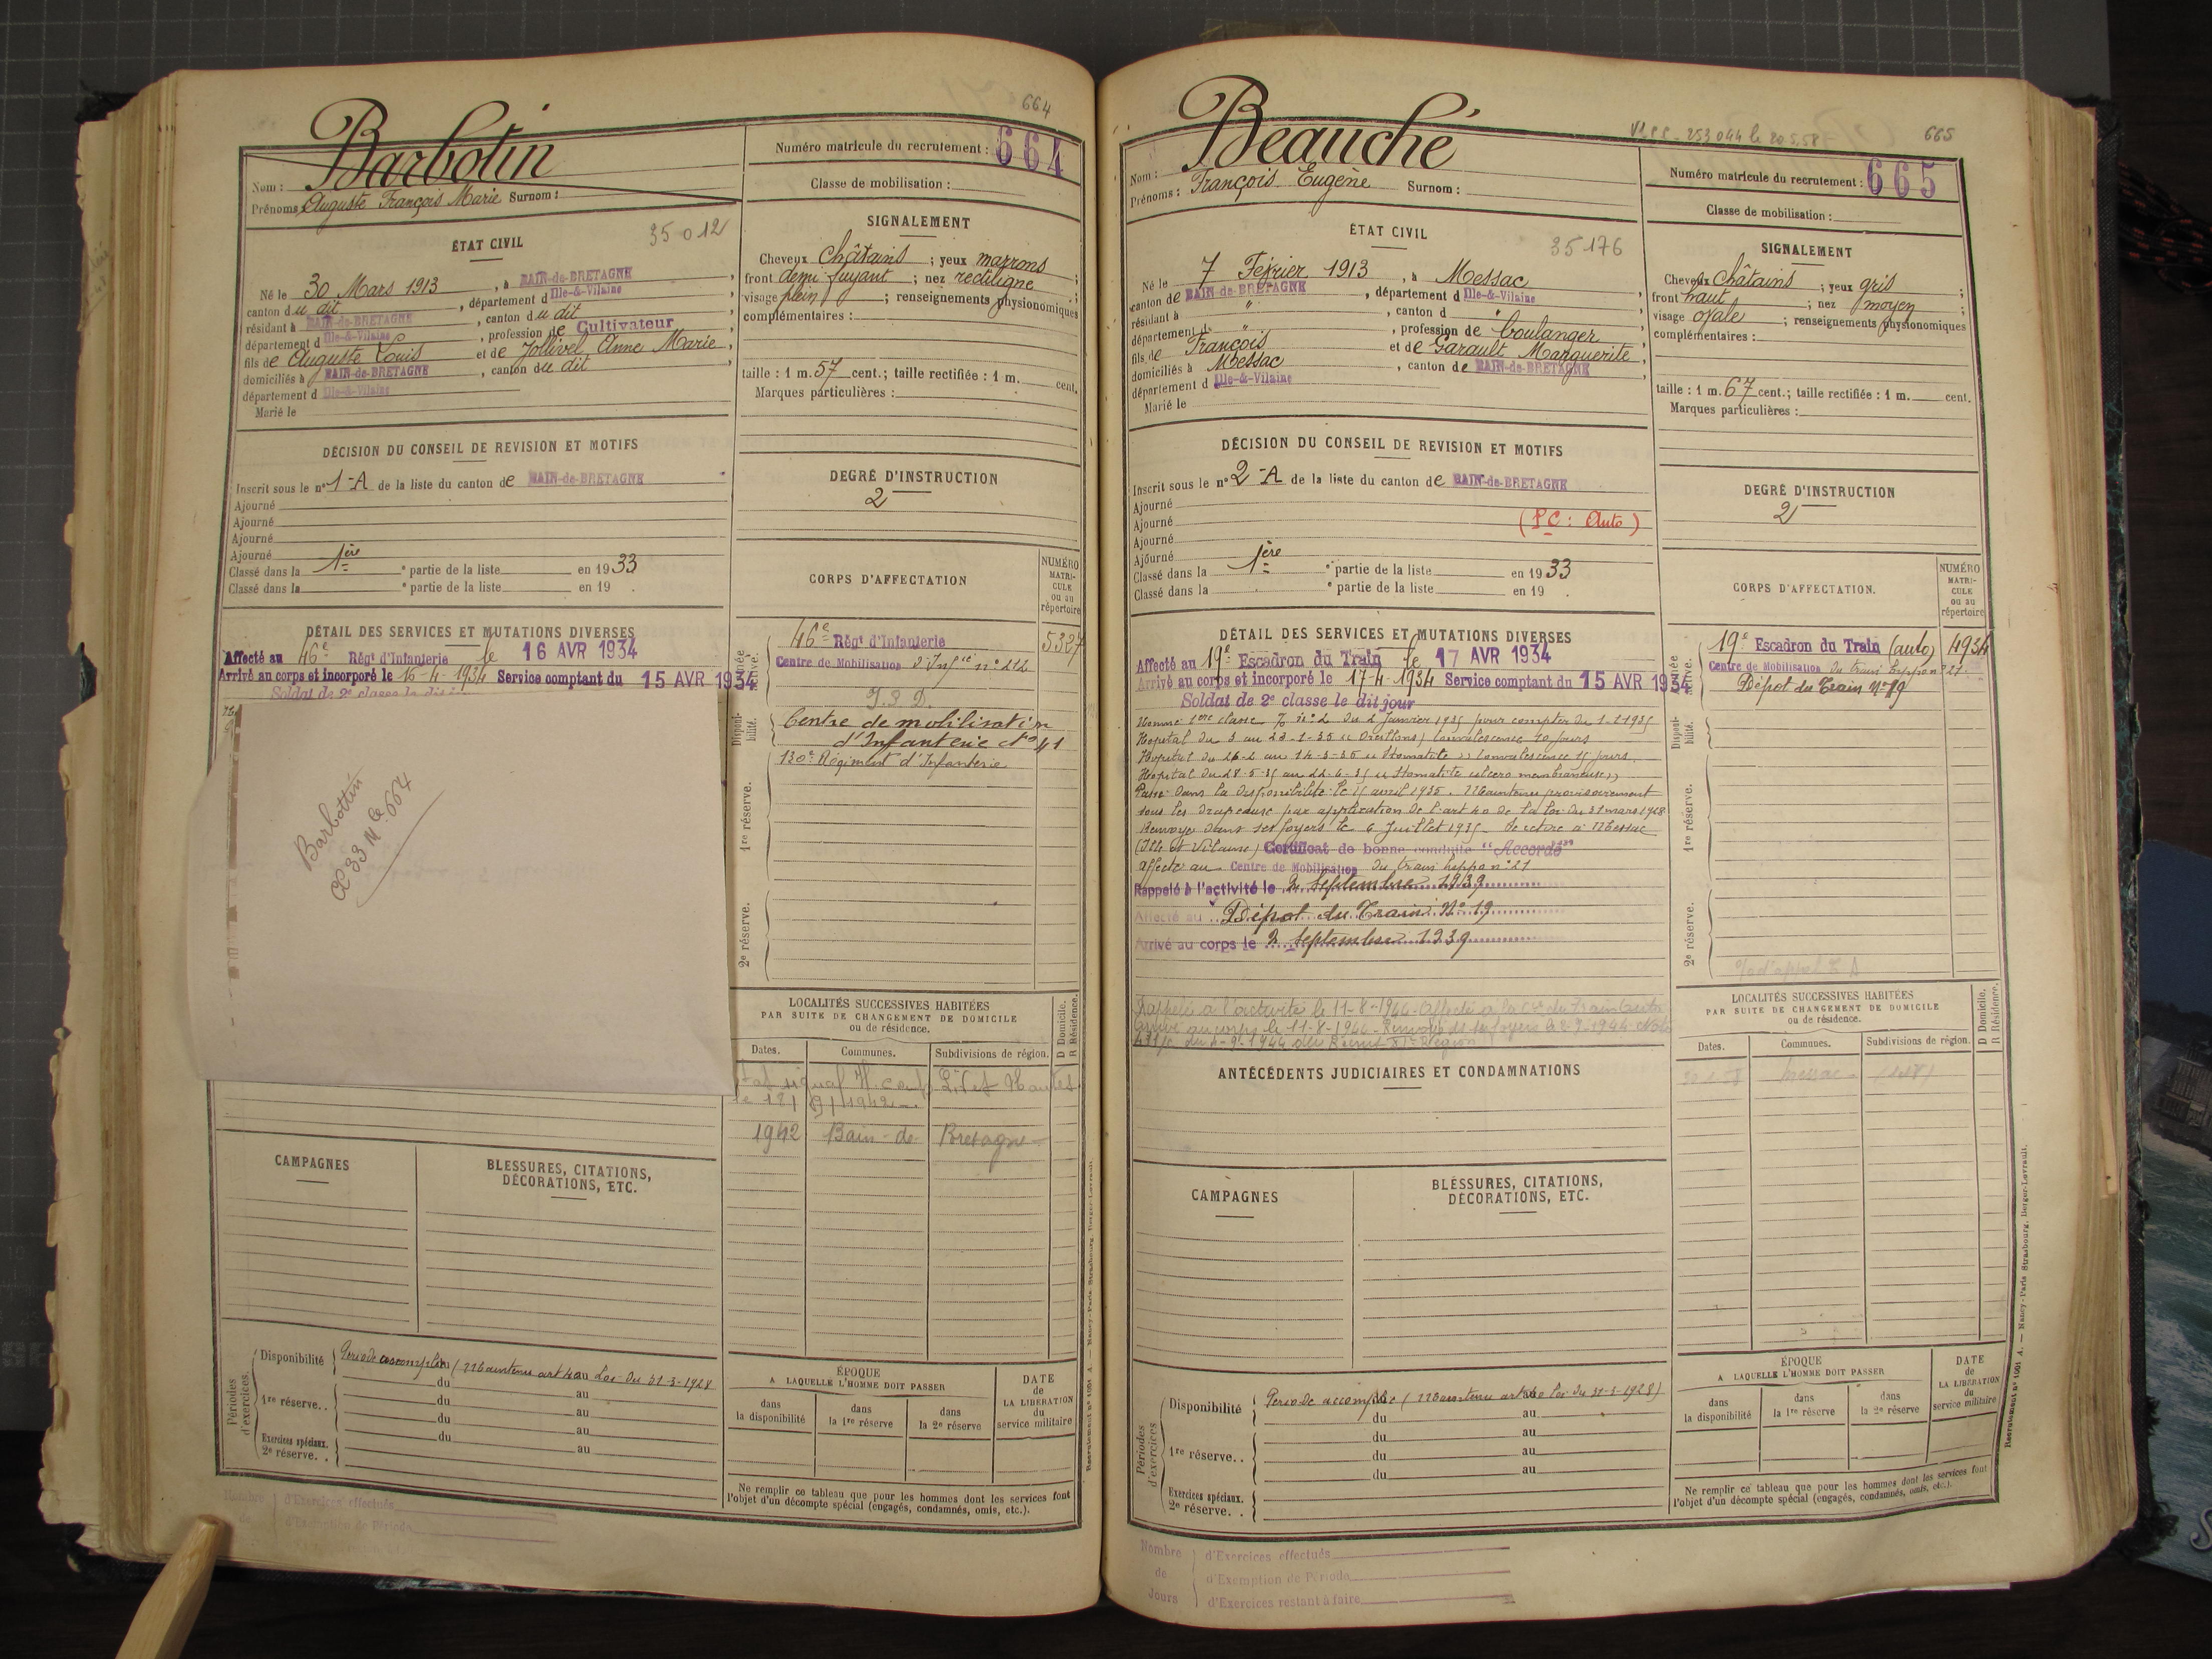 664
Barbotin
Nom :
Prénoms : Auguste François Marie Surnom :
Numéro matricule du recrutement : 664
Classe de mobilisation :
ÉTAT CIVIL
35 012
Né le 30 Mars 1913, à BAIN-de-BRETAGNE,
canton du dit, département d Ille-&-Vilaine,
résidant à BAIN-de-BRETAGNE, canton du dit,
département d Ille-&-Vilaine, profession de Cultivateur
fils de Auguste Louis et de Jollivel Anne Marie,
domiciliés à BAIN-de-BRETAGNE, canton du dit,
département d Ille-&-Vilaine
Marié le
SIGNALEMENT
Cheveux châtains ; yeux marrons ;
front demi fuyant ; nez rectiligne ;
visage plein ; renseignements physionomiques
complémentaires :
taille : 1 m. 57 cent. ; taille rectifiée : 1 m. cent.
Marques particulières :
DÉCISION DU CONSEIL DE REVISION ET MOTIFS
Inscrit sous le n° 1-A de la liste du canton de BAIN-de-BRETAGNE
Ajourné
Ajourné
Ajourné
Ajourné
Classé dans la 1ère partie de la liste en 1933
Classé dans la e partie de la liste en 19
DEGRÉ D'INSTRUCTION
2
CORPS D'AFFECTATION
NUMÉRO MATRICULE ou au répertoire
DÉTAIL DES SERVICES ET MUTATIONS DIVERSES
Affecté au 46e Régt d'Infanterie le 16 AVR 1934
Arrivé au corps et incorporé le 16-4-1934 Service comptant du 15 AVR 1934
Soldat de 2e classe le dit
Barbottin
Cl 33 Mle 664
46e Régt d'Infanterie 5327
Centre de Mobilisation d'Infie n° 222
Centre de mobilisation
d'Infanterie N° 41
130e Régiment d'Infanterie
Disponibilité.
1re réserve.
2e réserve.
LOCALITÉS SUCCESSIVES HABITÉES
PAR SUITE DE CHANGEMENT DE DOMICILE
ou de résidence.
D Domicile.
R Résidence.
Dates. Communes. Subdivisions de région.
1942 Bain-de-Bretagne
CAMPAGNES
BLESSURES, CITATIONS,
DÉCORATIONS, ETC.
Périodes d'exercices.
Disponibilité Période accomplie (Maintenu art 40 Loi du 31-3-1928
du au
1re réserve. . du au
du au
Exercices spéciaux.
2e réserve. . du au
ÉPOQUE
A LAQUELLE L'HOMME DOIT PASSER
dans la disponibilité
dans la 1re réserve
dans la 2e réserve
DATE de LA LIBÉRATION du service militaire
Ne remplir ce tableau que pour les hommes dont les services font
l'objet d'un décompte spécial (engagés, condamnés, omis, etc.).
Nombre d'Exercices effectués
de d'Exemption de Période
665
Beauché
Nom :
Prénoms : François Eugène Surnom :
Numéro matricule du recrutement : 665
Classe de mobilisation :
ÉTAT CIVIL
35176
Né le 7 Février 1913, à Messac,
canton de BAIN-de-BRETAGNE, département d Ille-&-Vilaine,
résidant à ", canton d ",
département d ", profession de boulanger,
fils de François et de Garault Marguerite,
domiciliés à Messac, canton de BAIN-de-BRETAGNE,
département d Ille-&-Vilaine
Marié le
SIGNALEMENT
Cheveux châtains ; yeux gris ;
front haut ; nez moyen ;
visage ovale ; renseignements physionomiques
complémentaires :
taille : 1 m. 67 cent. ; taille rectifiée : 1 m. cent.
Marques particulières :
DÉCISION DU CONSEIL DE REVISION ET MOTIFS
Inscrit sous le n° 2-A de la liste du canton de BAIN-de-BRETAGNE
Ajourné
Ajourné (PC : Auto)
Ajourné
Ajourné
Classé dans la 1ère partie de la liste en 1933
Classé dans la e partie de la liste en 19
DEGRÉ D'INSTRUCTION
2
CORPS D'AFFECTATION.
NUMÉRO MATRICULE ou au répertoire
DÉTAIL DES SERVICES ET MUTATIONS DIVERSES
Affecté au 19e Escadron du Train le 17 AVR 1934
Arrivé au corps et incorporé le 17-4-1934 Service comptant du 15 AVR 1934
Soldat de 2e classe le dit jour
Hôpital du 3 au 23-1-35 "Oreillons" Convalescence 20 jours
Passé dans la disponibilité le 15 avril 1935. Maintenu provisoirement
sous les drapeaux par application de l'art 40 de la loi du 31 mars 1928
Renvoyé dans ses foyers le 6 Juillet 1935. Se retire à Messac
(Ille et Vilaine) Certificat de bonne conduite "Accordé"
Affecté au Centre de Mobilisation du train hippo n° 21
Rappelé à l'activité le 2 septembre 1939
Affecté au Dépot du Train N° 19
Arrivé au corps le 2 septembre 1939
Rappelé à l'activité le 11-8-1944
arrivé au corps le 11-8-1944
19e Escadron du Train (auto) 4934
Centre de Mobilisation du train hippo n° 21
Dépot du Train N° 19
Disponibilité.
1re réserve.
2e réserve.
ANTÉCÉDENTS JUDICIAIRES ET CONDAMNATIONS
LOCALITÉS SUCCESSIVES HABITÉES
PAR SUITE DE CHANGEMENT DE DOMICILE
ou de résidence.
D Domicile.
R Résidence.
Dates. Communes. Subdivisions de région.
Messac
CAMPAGNES
BLESSURES, CITATIONS,
DÉCORATIONS, ETC.
Périodes d'exercices
Disponibilité Période accomplie (Maintenu art 40 loi du 31-3-1928)
du au
1re réserve. . du au
du au
Exercices spéciaux.
2e réserve. . du au
ÉPOQUE
A LAQUELLE L'HOMME DOIT PASSER
dans la disponibilité
dans la 1re réserve
dans la 2e réserve
DATE de LA LIBÉRATION du service militaire
Ne remplir ce tableau que pour les hommes dont les services font
l'objet d'un décompte spécial (engagés, condamnés, omis, etc.).
Nombre d'Exercices effectués
de d'Exemption de Période
Jours d'Exercices restant à faire